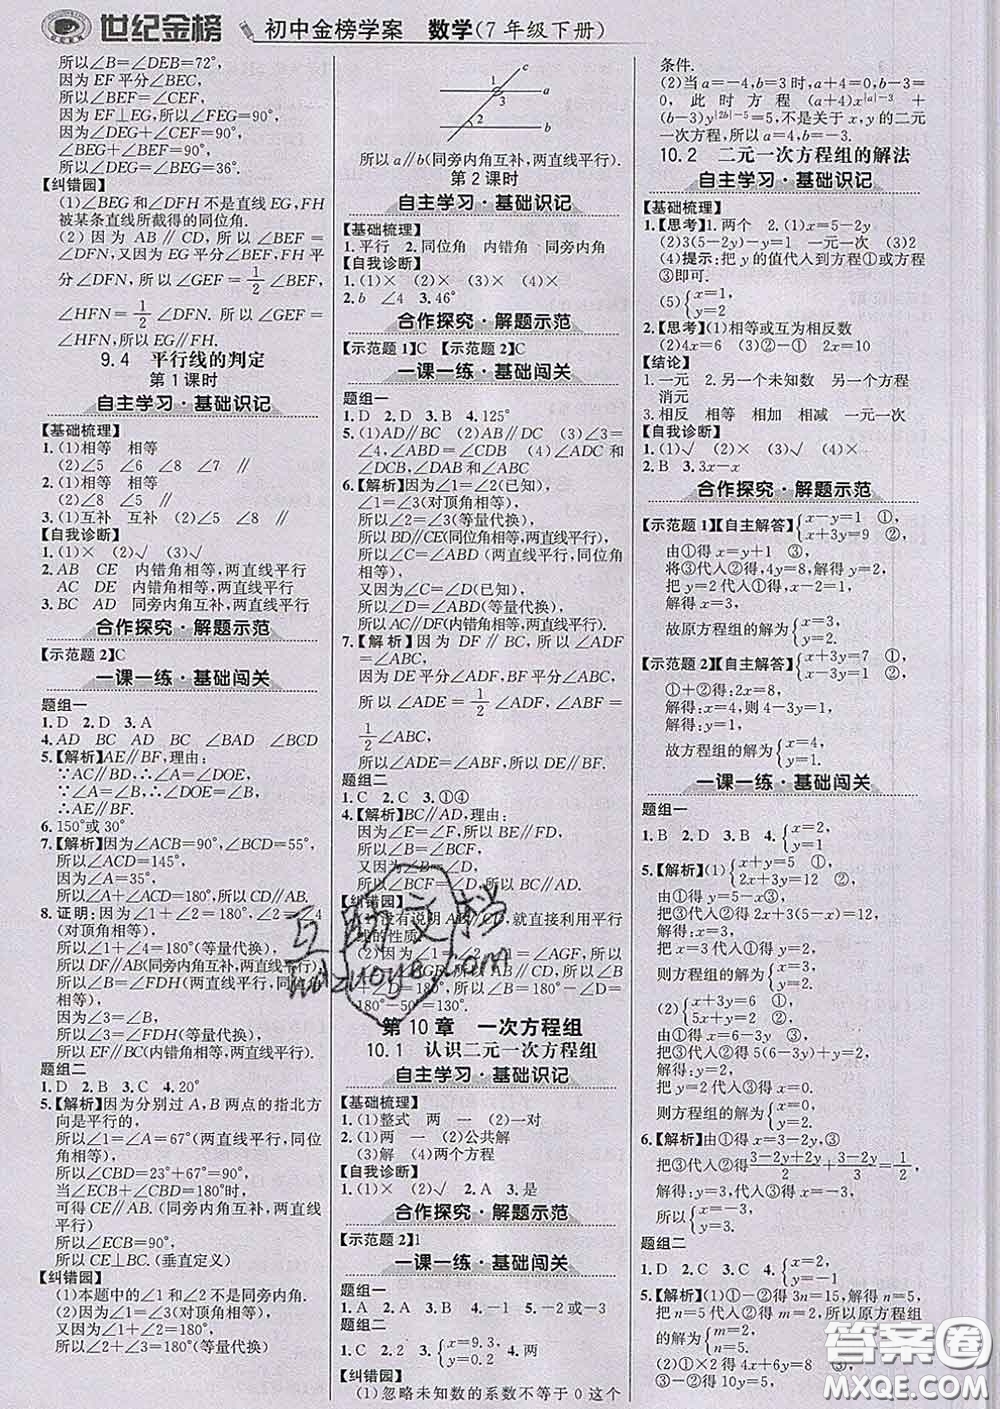 世纪金榜 初中金榜学案 数学(7年级下册)
所以∠B=∠DEB=72°,
因为EF平分∠BEC,
所以∠BEF=∠CEF,
因为EF⊥EG,所以∠FEG=90°,
因为∠DEG+∠CEF=90°,
∠BEG+∠BEF=90°,
所以∠DEG=∠BEG=36°.
【纠错园】
(1)∠BEG和∠DFH不是直线EG,FH
被某条直线所截得的同位角.
(2)因为AB∥CD,所以∠BEF=
∠DFN,又因为EG平分∠BEF,FH平分
∠DFN,所以∠GEF=1/2∠BEF,
∠HFN=1/2∠DFN.所以∠GEF=
∠HFN,所以EG∥FH.
9.4 平行线的判定
第1课时
自主学习·基础识记
【基础梳理】
1.(1)相等 相等
(2)∠5 ∠6 ∠8 ∠7 ∥
2.(1)相等 相等
(2)∠7 ∠8 ∠5 ∥
3.(1)互补 互补 (2)∠5 ∥
【自我诊断】
1.(1)× (2)√ (3)√
2.AB CE 内错角相等,两直线平行
AC DE 内错角相等,两直线平行
3.BC AD 同旁内角互补,两直线平行
合作探究·解题示范
【示范题2】C
一课一练·基础闯关
题组一
1.D 2.D 3.A
4.AD BC AD BC ∠BAD ∠BCD
5.【解析】AE∥BF,理由:
∵AC∥BD,∴∠A=∠DOE,
∵∠A=∠B,∴∠DOE=∠B,
∴AE∥BF.
6.150°或30°
7.【解析】因为∠ACB=90°,∠BCD=55°,
所以∠ACD=145°,
因为∠A=35°,
所以∠A+∠ACD=180°,所以CD∥AB.
8.证明:因为∠1+∠2=180°,∠2=∠4
(对顶角相等),
所以∠1+∠4=180°(等量代换),
所以DF∥AB(同旁内角互补,两直线平行),
所以∠B=∠FDH(两直线平行,同位角相等),
因为∠3=∠B,
所以∠3=∠FDH(等量代换),
所以EF∥BC(内错角相等,两直线平行).
题组二
1.D 2.B 3.C 4.20°
5.【解析】因为分别过A,B两点的指北方
向是平行的,
所以∠1=∠A=67°(两直线平行,同位
角相等),
所以∠CBD=23°+67°=90°,
当∠ECB+∠CBD=180°时,
可得CE∥AB.(同旁内角互补,两直线
平行)
所以∠ECB=90°,
所以CE⊥BC.(垂直定义)
【纠错园】
(1)本题中的∠1和∠2不是同旁内角.
(2)因为∠1=∠3(对顶角相等),
又因为∠1+∠2=180°,
所以∠2+∠3=180°(等量代换)
c
1
3
a
2
b
所以a∥b(同旁内角互补,两直线平行).
第2课时
自主学习·基础识记
【基础梳理】
1.平行 2.同位角 内错角 同旁内角
【自我诊断】
1.(1)× (2)× (3)× (4)×
2.b ∠4 3.46°
合作探究·解题示范
【示范题1】C 【示范题2】C
一课一练·基础闯关
题组一
1.D 2.D 3.B 4.125°
5.(1)AD∥BC (2)AD∥BC (3)∠3=
∠4,∠ABD=∠CDB (4)∠ADC和
∠DCB,∠DAB和∠ABC
6.【解析】因为∠1=∠2(已知),
∠1=∠3(对顶角相等),
所以∠2=∠3(等量代换),
所以BD∥CE(同位角相等,两直线平行),
所以∠C=∠ABD(两直线平行,同位角
相等),
又因为∠C=∠D(已知),
所以∠D=∠ABD(等量代换),
所以AC∥DF(内错角相等,两直线平行).
7.【解析】因为DF∥BC,所以∠ADF
=∠ABC,
因为DE平分∠ADF,BF平分∠ABC,
所以∠ADE=1/2∠ADF,∠ABF=
1/2∠ABC,
所以∠ADE=∠ABF,所以DE∥BF.
题组二
1.C 2.C 3.①④
4.【解析】BC∥AD,理由:
因为∠E=∠F,所以BE∥CF,
所以∠B=∠BCF,
又因为∠B=∠D,
所以∠BCF=∠D,所以BC∥AD.
【纠错园】
(1)没有说明AB∥CD,就直接利用平行
线的性质.
(2)因为∠1=∠2,∠2=∠AGF,所以
∠1=∠AGF,所以AB∥CD,所以∠B
+∠D=180°,所以∠B=180°-∠D=
180°-50°=130°.
第10章 一次方程组
10.1 认识二元一次方程组
自主学习·基础识记
【基础梳理】
1.(1)整式 两 一 (2)一对
2.(1)两 一 (2)公共解
(3)解 (4)两个方程
【自我诊断】
1.(1)× (2)√ 2.A 3.是
合作探究·解题示范
【示范题2】1
一课一练·基础闯关
题组一
1.A 2.A 3.B 4.-1 5.-2或-3
题组二
1.C 2.C 3.D 4.{x=9.3, y=0.2 5.两
【纠错园】
(1)忽略未知数的系数不等于0这个
条件.
(2)当a=-4,b=3时,a+4=0,b-3=
0,此时方程(a+4)x^{|a|-3}+
(b-3)y^{|2b|-5}=5,不是关于x,y的二元
一次方程,所以a=4,b=-3.
10.2 二元一次方程组的解法
自主学习·基础识记
【基础梳理】
1.【思考】1.两个 2.(1)x=5-2y
(2)3(5-2y)-y=1 一元一次 (3)2
(4)提示:把y的值代入到方程①或方程
③即可.
(5){x=1, y=2
2.【思考】(1)相等或互为相反数
(2)3x=6 (3)②-① 2x=10
【结论】
1.一元 2.另一个未知数 另一个方程
消元
3.相反 相等 相加 相减 一元一次
【自我诊断】
1.(1)√ (2)× (3)× (4)×
2.B 3.3x-x
合作探究·解题示范
【示范题1】【自主解答】{x-y=1 ①, x+3y=9 ②,
由①得x=y+1 ③,
将③代入②得,4y=8,解得y=2,
把y=2代入①得,x-2=1,
解得x=3,
故原方程组的解为{x=3, y=2.
【示范题2】【自主解答】{x-3y=1 ①, x+3y=7 ②,
①+②得:2x=8,
解得:x=4,则4-3y=1,
解得:y=1,
故方程组的解为{x=4, y=1.
一课一练·基础闯关
题组一
1.B 2.D 3.B 4.{x=2, y=1
5.【解析】(1){x+y=5 ①, 2x+3y=12 ②,
由①得y=5-x ③,
把③代入②得2x+3(5-x)=12,
解得x=3,
把x=3代入③得y=2,
则方程组的解为{x=3, y=2.
(2){x+3y=6 ①, 5x-2y=13 ②,
由①得x=6-3y ③,
把③代入②得5(6-3y)-2y=13,
解得y=1,
把y=1代入③得x=3,
则方程组的解为{x=3, y=1.
6.【解析】由①得x=3-2y,③
把③代入②得(3-2y+2y)/2+(3-2y)/3=1/2,
解得y=3,
把y=3代入③得x=-3,
所以{x=-3, y=3.
题组二
1.C 2.D 3.D
5.【解析】(1)①-②得3n=15,解得n=5,
把n=5代入②得m=2,所以原方程组
的解为{m=2, n=5.
互助文档
huzuoye.com
答案圈
MXQE.COM